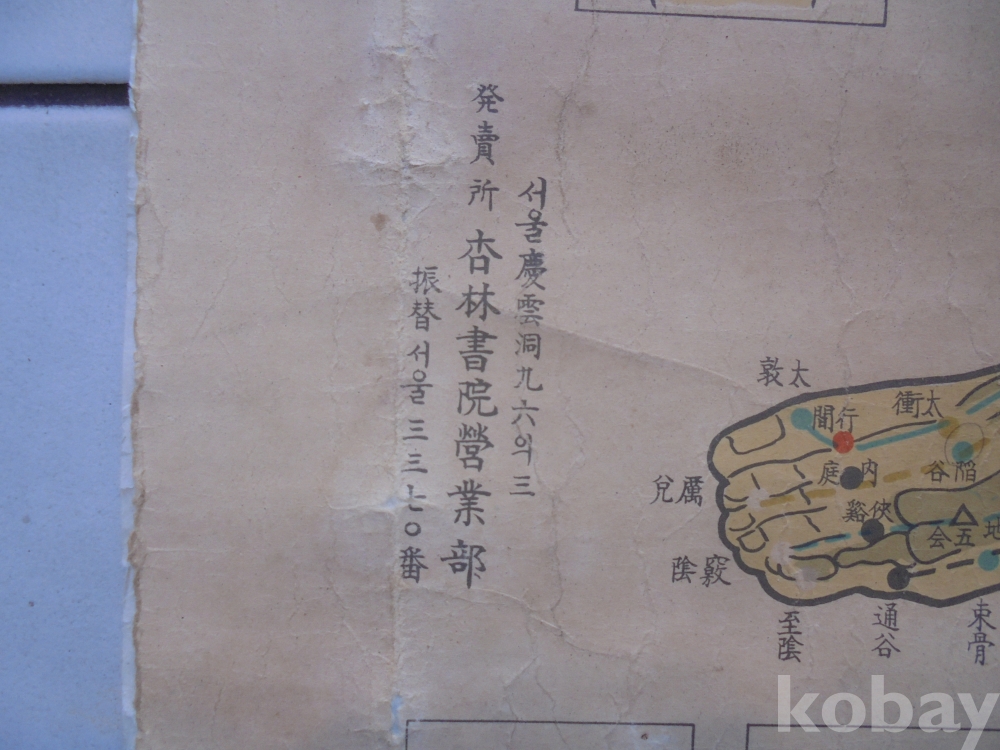 서울慶雲洞九六의三
発賣所 杏林書院營業部
振替서울三三七〇番
太敦
太衝
行間
内庭
陷谷
俠谿
厲兌
五会
地
竅陰
至陰
通谷
束骨
kobay